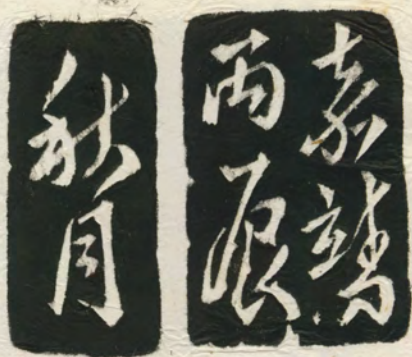 素靖
丙辰
秋月